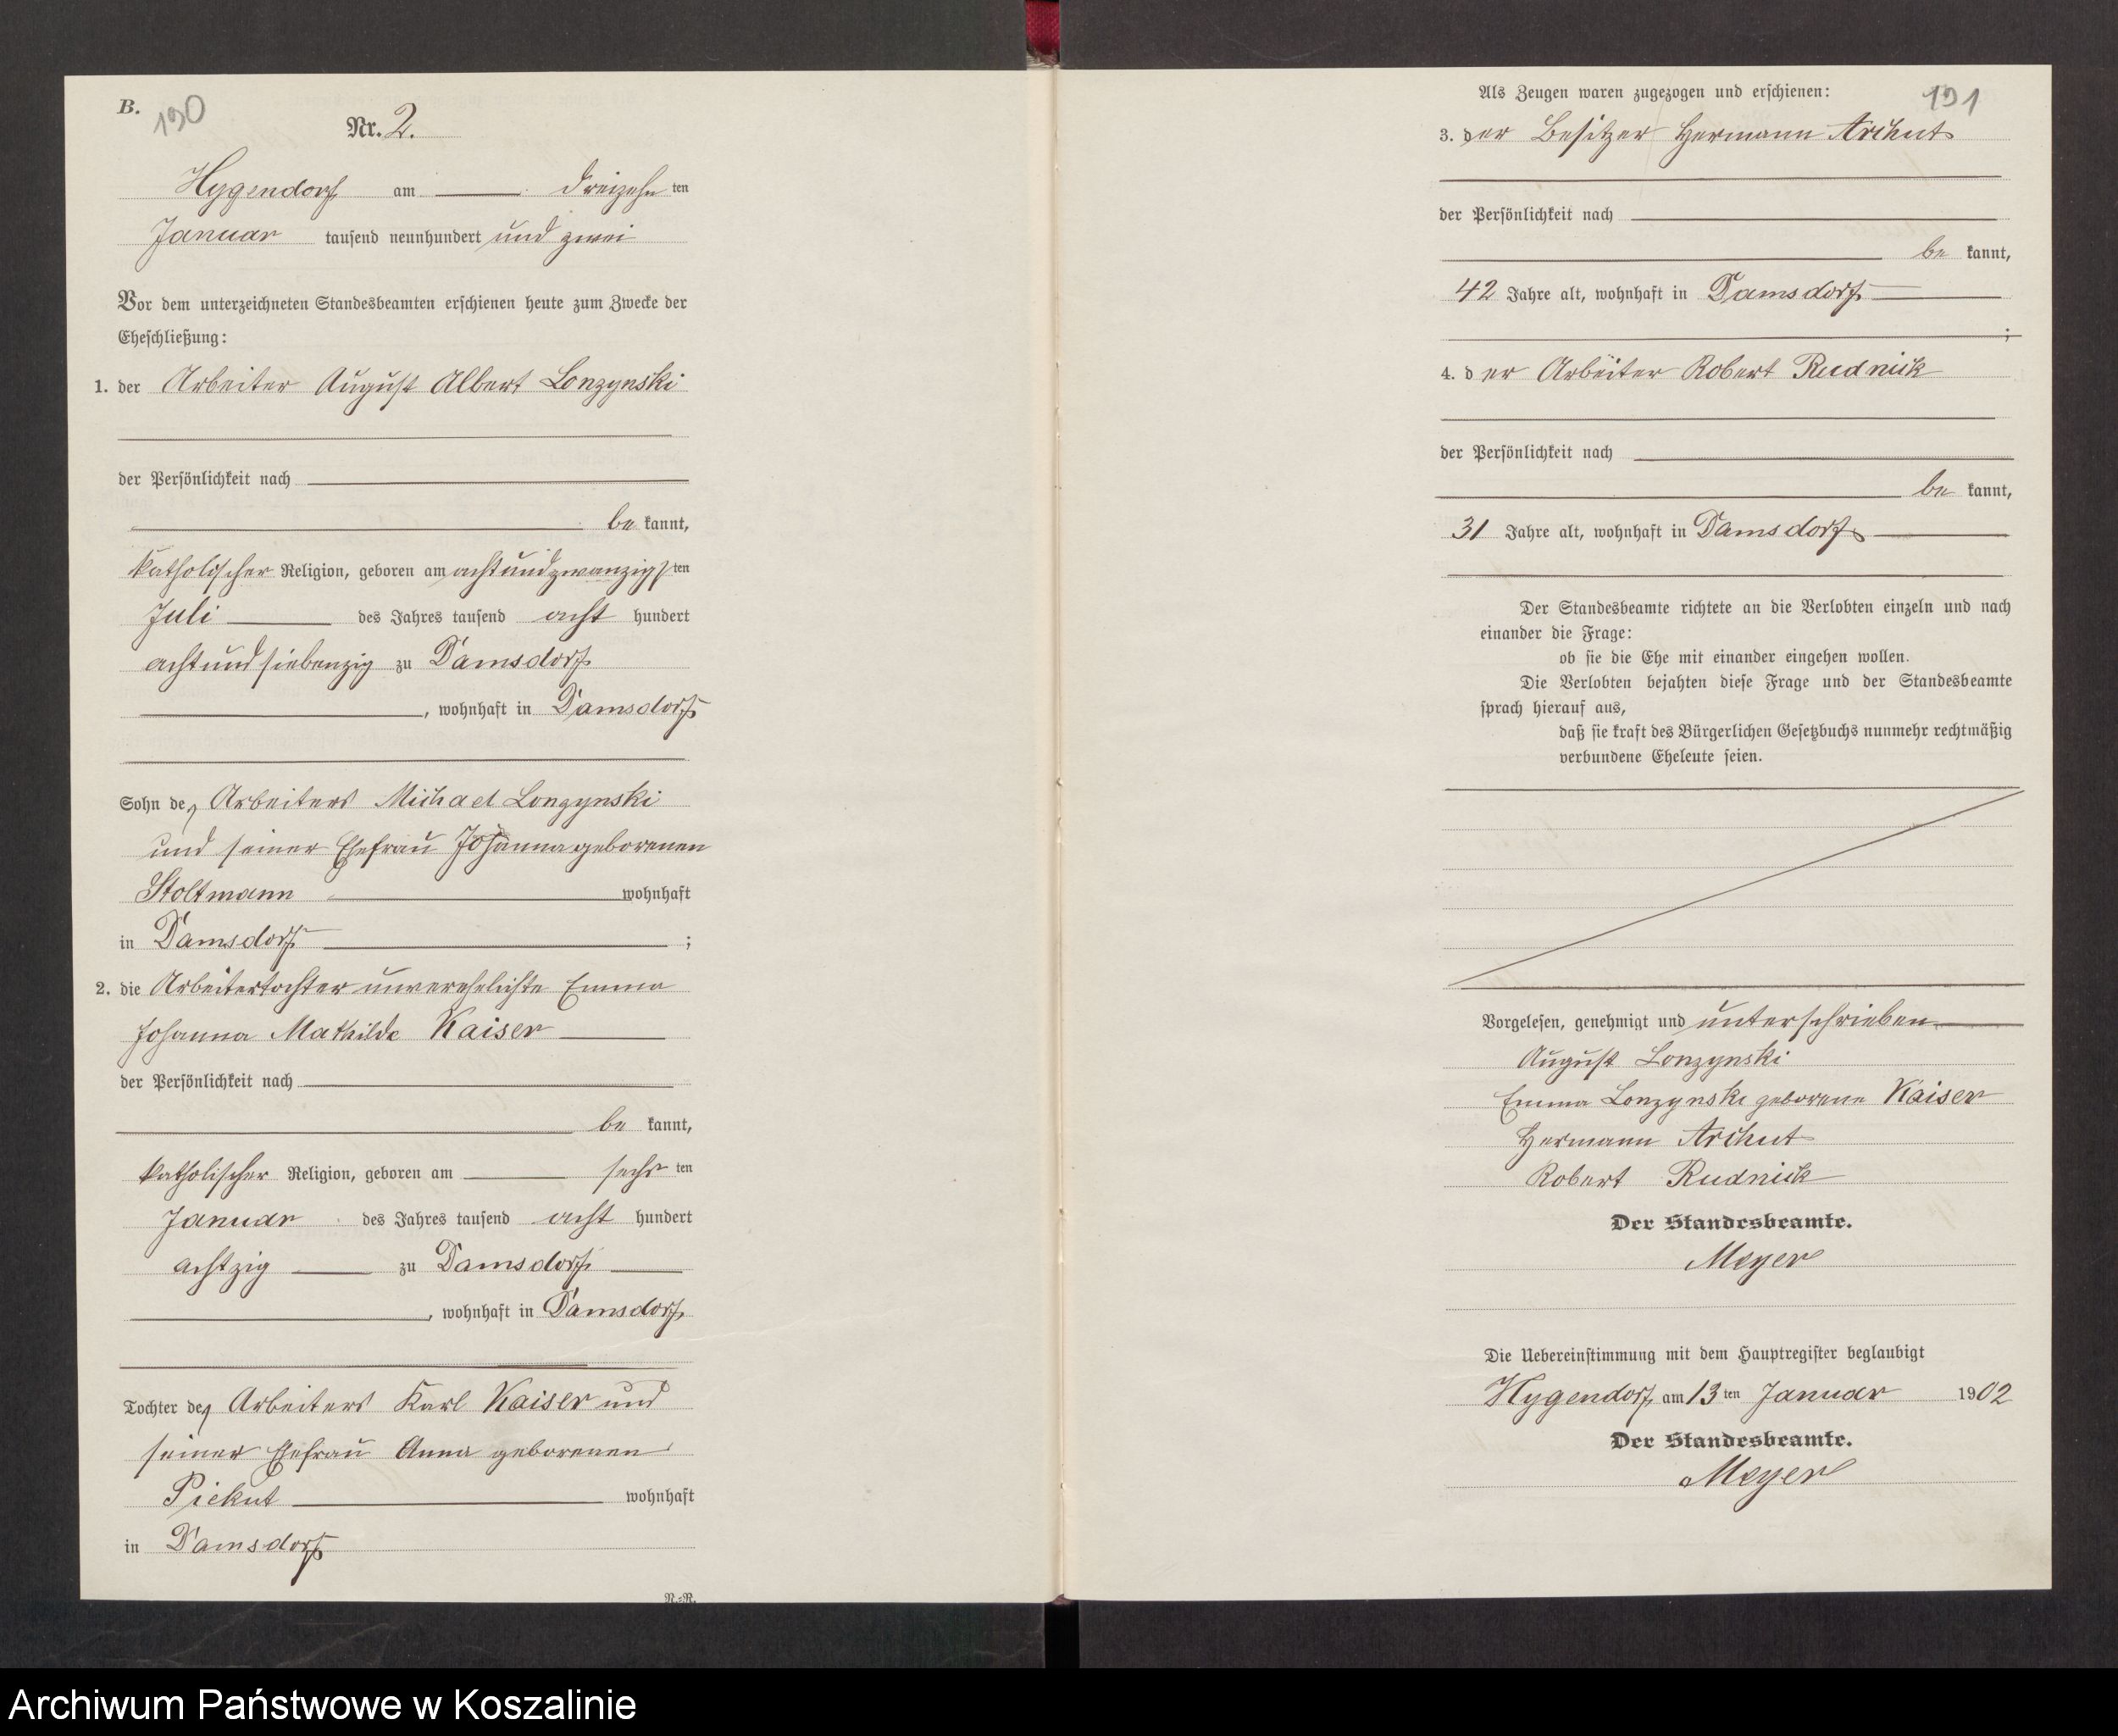 B.
190
Nr. 2.
Hygendorf am dreizehn ten
Januar tausend neunhundert und zwei
Vor dem unterzeichneten Standesbeamten erschienen heute zum Zwecke der
Eheschließung:
1. der Arbeiter August Albert Lonzynski
der Persönlichkeit nach
be kannt,
katholischer Religion, geboren am achtundzwanzigs ten
Juli des Jahres tausend acht hundert
achtundsiebenzig zu Damsdorf
, wohnhaft in Damsdorf
Sohn des Arbeiters Michael Lonzynski
und seiner Ehefrau Johanna geborenen
Stoltmann wohnhaft
in Damsdorf ;
2. die Arbeitertochter unverehelichte Emma
Johanna Mathilde Kaiser
der Persönlichkeit nach
be kannt,
katholischer Religion, geboren am sechs ten
Januar des Jahres tausend acht hundert
achtzig zu Damsdorf
, wohnhaft in Damsdorf
Tochter des Arbeiters Karl Kaiser und
seiner Ehefrau Anna geborenen
Piekut wohnhaft
in Damsdorf
N.=R.
191
Als Zeugen waren zugezogen und erschienen:
3. der Besitzer Hermann Archut
der Persönlichkeit nach
be kannt,
42 Jahre alt, wohnhaft in Damsdorf
;
4. der Arbeiter Robert Rudnick
der Persönlichkeit nach
be kannt,
31 Jahre alt, wohnhaft in Damsdorf
Der Standesbeamte richtete an die Verlobten einzeln und nach
einander die Frage:
ob sie die Ehe mit einander eingehen wollen.
Die Verlobten bejahten diese Frage und der Standesbeamte
sprach hierauf aus,
daß sie kraft des Bürgerlichen Gesetzbuchs nunmehr rechtmäßig
verbundene Eheleute seien.
Vorgelesen, genehmigt und unterschrieben
August Lonzynski
Emma Lonzynski geborene Kaiser
Hermann Archut
Robert Rudnick
Der Standesbeamte.
Meyer
Die Uebereinstimmung mit dem Hauptregister beglaubigt
Hygendorf, am 13 ten Januar 1902
Der Standesbeamte.
Meyer
Archiwum Państwowe w Koszalinie